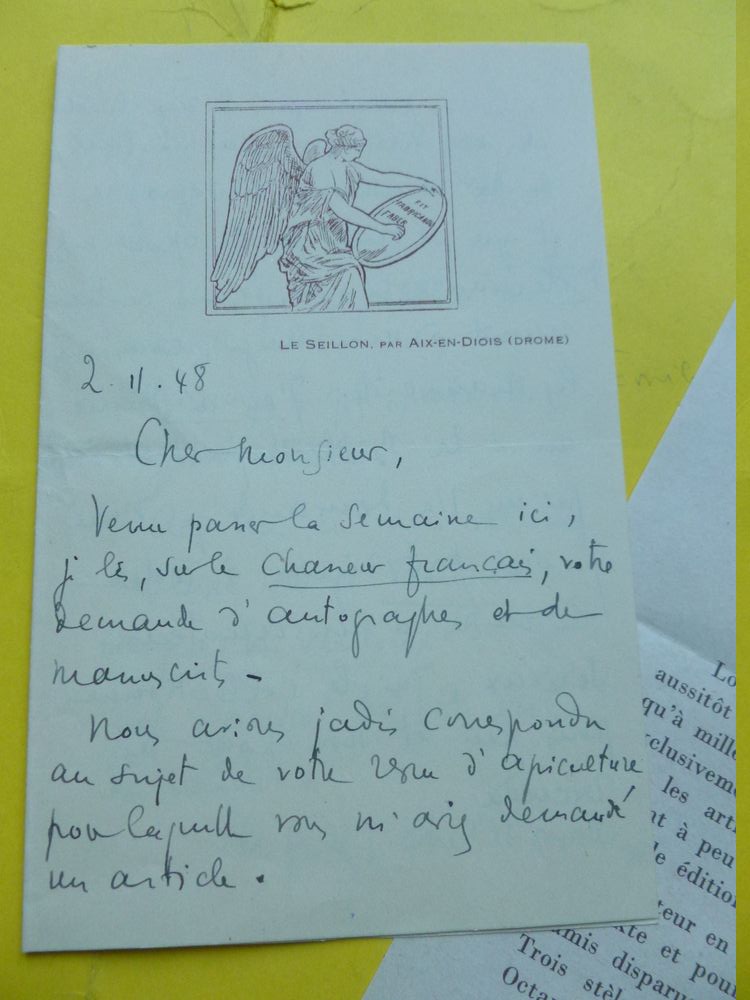 FIT
FABRICANDO
FABER
LE SEILLON, PAR AIX-EN-DIOIS (DROME)
2.11.48
Cher Monsieur,
Venu passer la semaine ici,
je lis, sur le Chasseur français, votre
demande d'autographes et de
manuscrits -
Nous avions jadis correspondu
au sujet de votre revue d'apiculture
pour laquelle vous m'aviez demandé
un article.
Lo
aussitôt
qu'à mille
xclusivem
les arti
nt à peu
le édition
teur en
xte et pour
amis disparu
Trois stèl
Octa